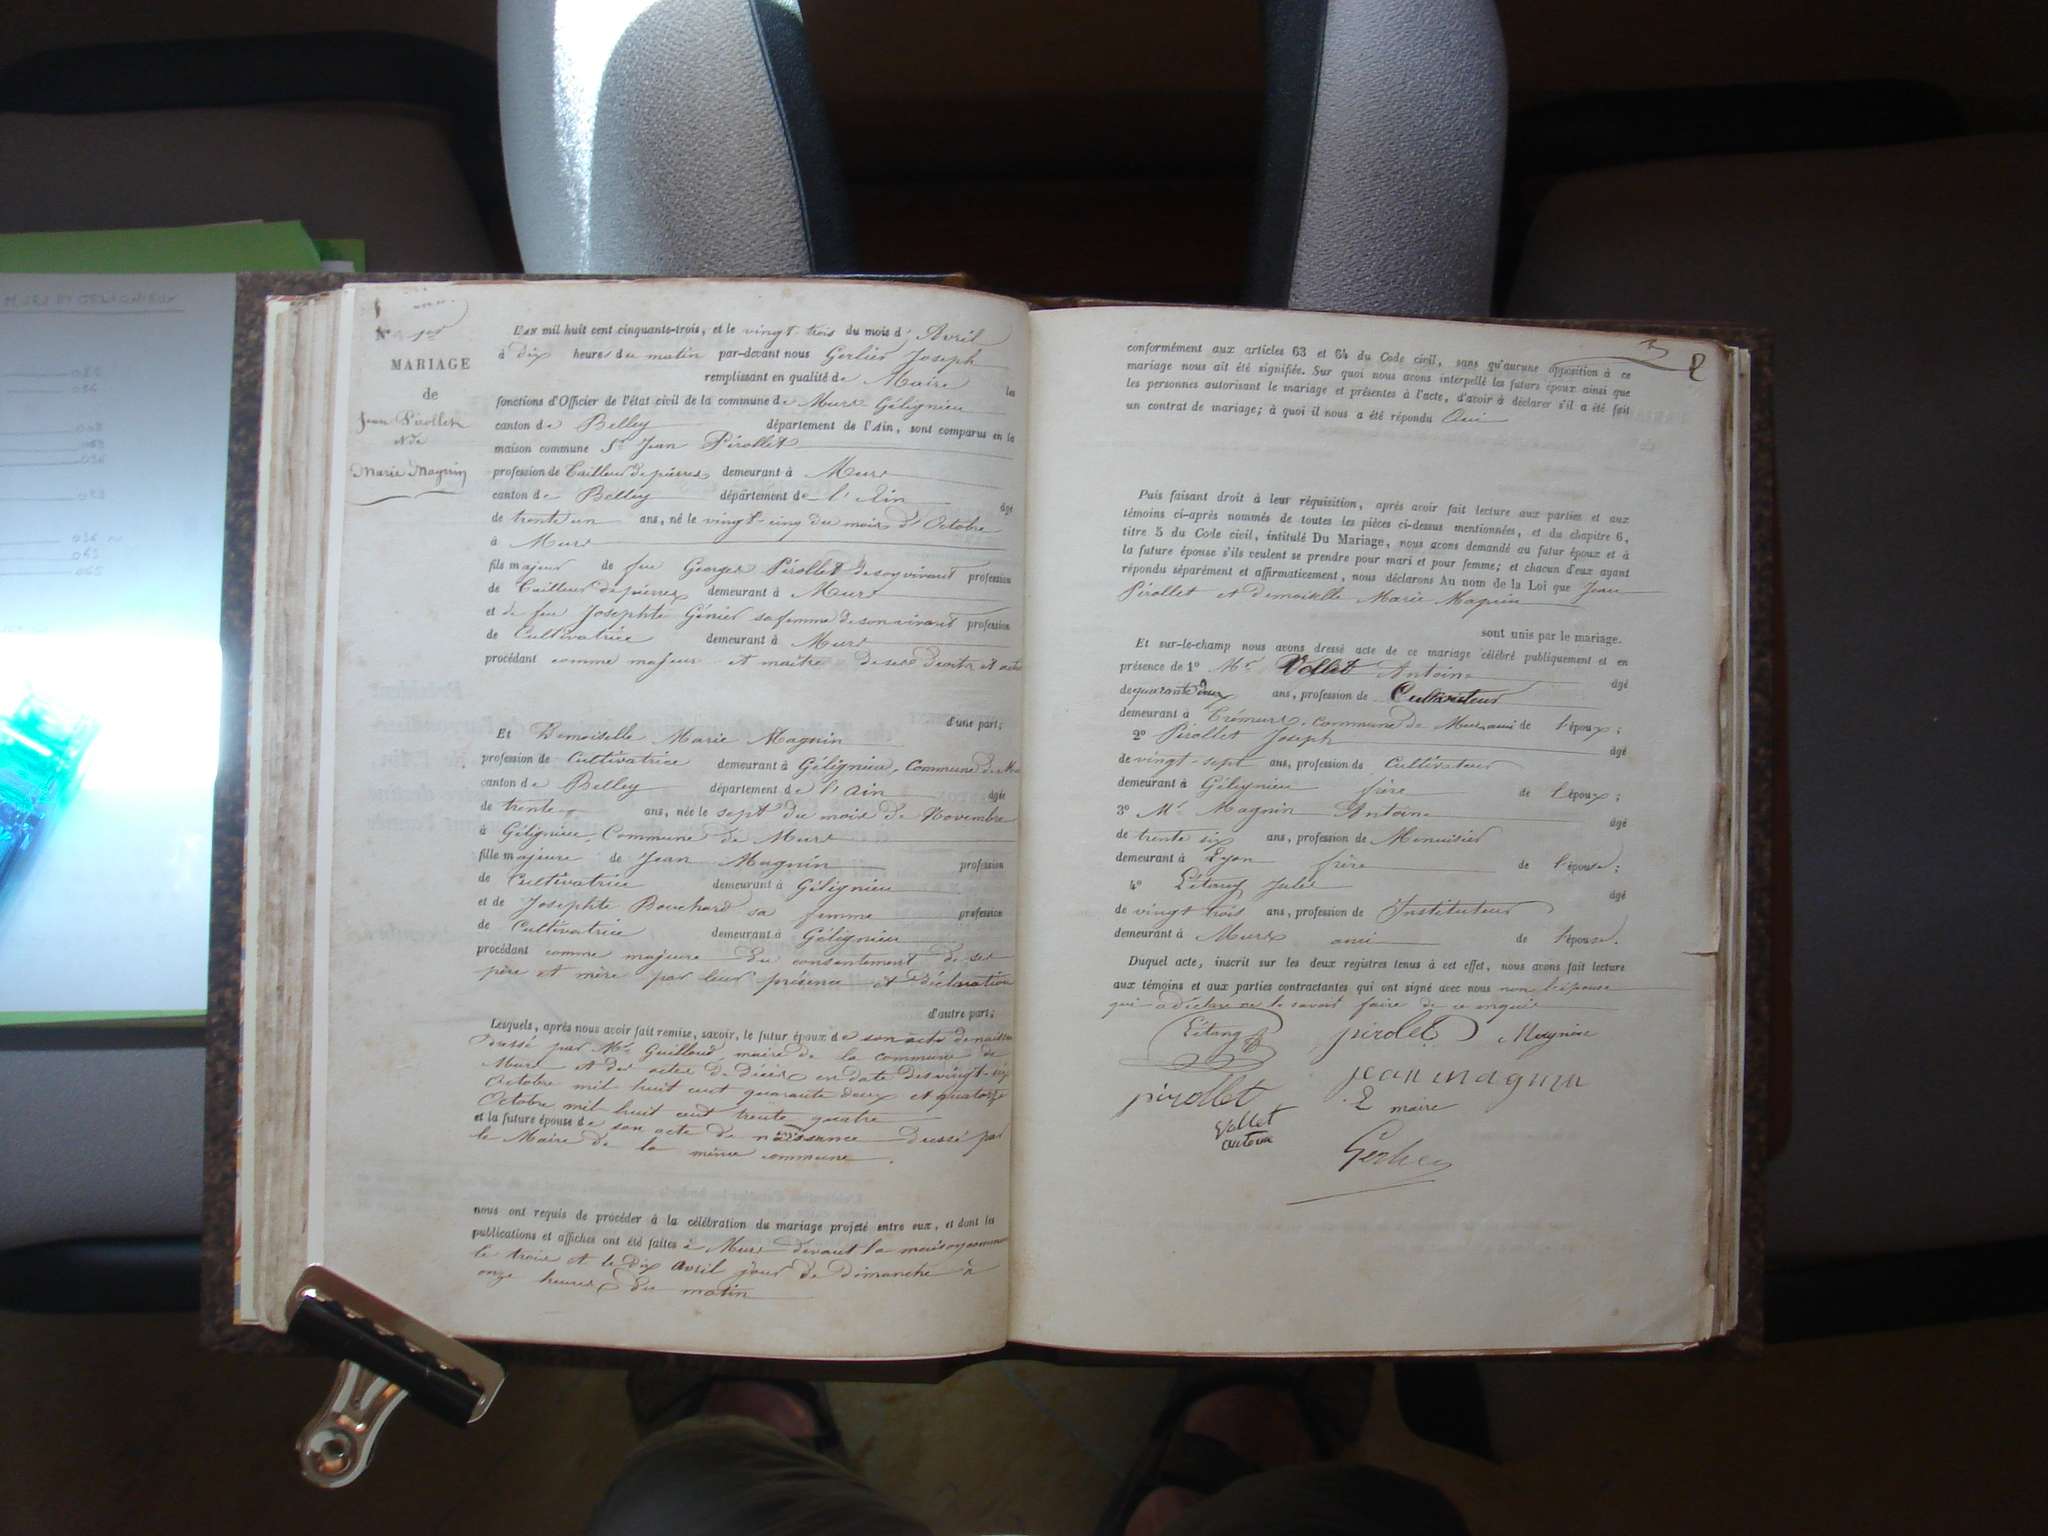 N° 1er
MARIAGE
de
Jean Pirollet
&de
Marie Magnin
L'AN mil huit cent cinquante-trois, et le vingt trois du mois d' Avril
à dix heures du matin par-devant nous Gerlier Joseph
remplissant en qualité de Maire les
fonctions d'Officier de l'état civil de la commune de Murs Gélignieu
canton de Belley département de l'Ain, sont comparus en la
maison commune Sr Jean Pirollet
profession de Tailleur de pierres demeurant à Murs
canton de Belley département de l'Ain âgé
de trente un ans, né le vingt-cinq du mois d'Octobre
à Murs
fils majeur de feu Georges Pirollet de son vivant profession
de Tailleur de pierres demeurant à Murs
et de feu Josephte Génier sa femme de son vivant profession
de Cultivatrice demeurant à Murs
procédant comme majeur et maître de ses droits et actes
d'une part;
Et Demoiselle Marie Magnin
profession de Cultivatrice demeurant à Gélignieu, Commune de Murs
canton de Belley département de l'Ain âgée
de trente ans, née le sept du mois de Novembre
à Gélignieu, Commune de Murs
fille majeure de Jean Magnin profession
de Cultivatrice demeurant à Gélignieu
et de Josephte Bouchard sa femme profession
de Cultivatrice demeurant à Gélignieu
procédant comme majeure du consentement de ses
père et mère par leur présence et déclaration
d'autre part;
Lesquels, après nous avoir fait remise, savoir, le futur époux de son acte de naissance
dressé par Mr Guilloud maire de la commune de
Murs et des actes de décès en date des vingt-six
Octobre mil huit cent quarante deux et quatorze
Octobre mil huit cent trente quatre
et la future épouse de son acte de naissance dressé par
le Maire de la même commune.
nous ont requis de procéder à la célébration du mariage projeté entre eux, et dont les
publications et affiches ont été faites à Murs devant la maison commune
le trois et le dix avril jour de dimanche à
onze heures du matin
2
conformément aux articles 63 et 64 du Code civil, sans qu'aucune opposition à ce
mariage nous ait été signifiée. Sur quoi nous avons interpellé les futurs époux ainsi que
les personnes autorisant le mariage et présentes à l'acte, d'avoir à déclarer s'il a été fait
un contrat de mariage; à quoi il nous a été répondu Oui
Puis faisant droit à leur réquisition, après avoir fait lecture aux parties et aux
témoins ci-après nommés de toutes les pièces ci-dessus mentionnées, et du chapitre 6,
titre 5 du Code civil, intitulé Du Mariage, nous avons demandé au futur époux et à
la future épouse s'ils veulent se prendre pour mari et pour femme; et chacun d'eux ayant
répondu séparément et affirmativement, nous déclarons Au nom de la Loi que Jean
Pirollet et demoiselle Marie Magnin
sont unis par le mariage.
Et sur-le-champ nous avons dressé acte de ce mariage célébré publiquement et en
présence de 1° Mr Vollet Antoine âgé
de quarante deux ans, profession de Cultivateur
demeurant à Crémurs, commune de Murs ami de l'époux;
2° Pirollet Joseph âgé
de vingt-sept ans, profession de Cultivateur
demeurant à Gélignieu frère de l'époux;
3° Mr Magnin Antoine âgé
de trente six ans, profession de Menuisier
demeurant à Lyon frère de l'épouse;
4° Létang Jules âgé
de vingt trois ans, profession de Instituteur
demeurant à Murs ami de l'épouse.
Duquel acte, inscrit sur les deux registres tenus à cet effet, nous avons fait lecture
aux témoins et aux parties contractantes qui ont signé avec nous non l'épouse
qui a déclaré ne le savoir faire de ce enquise
Létang pirolet Magnin
pirollet jean magnin
Vollet antoine
maire
Gerlier